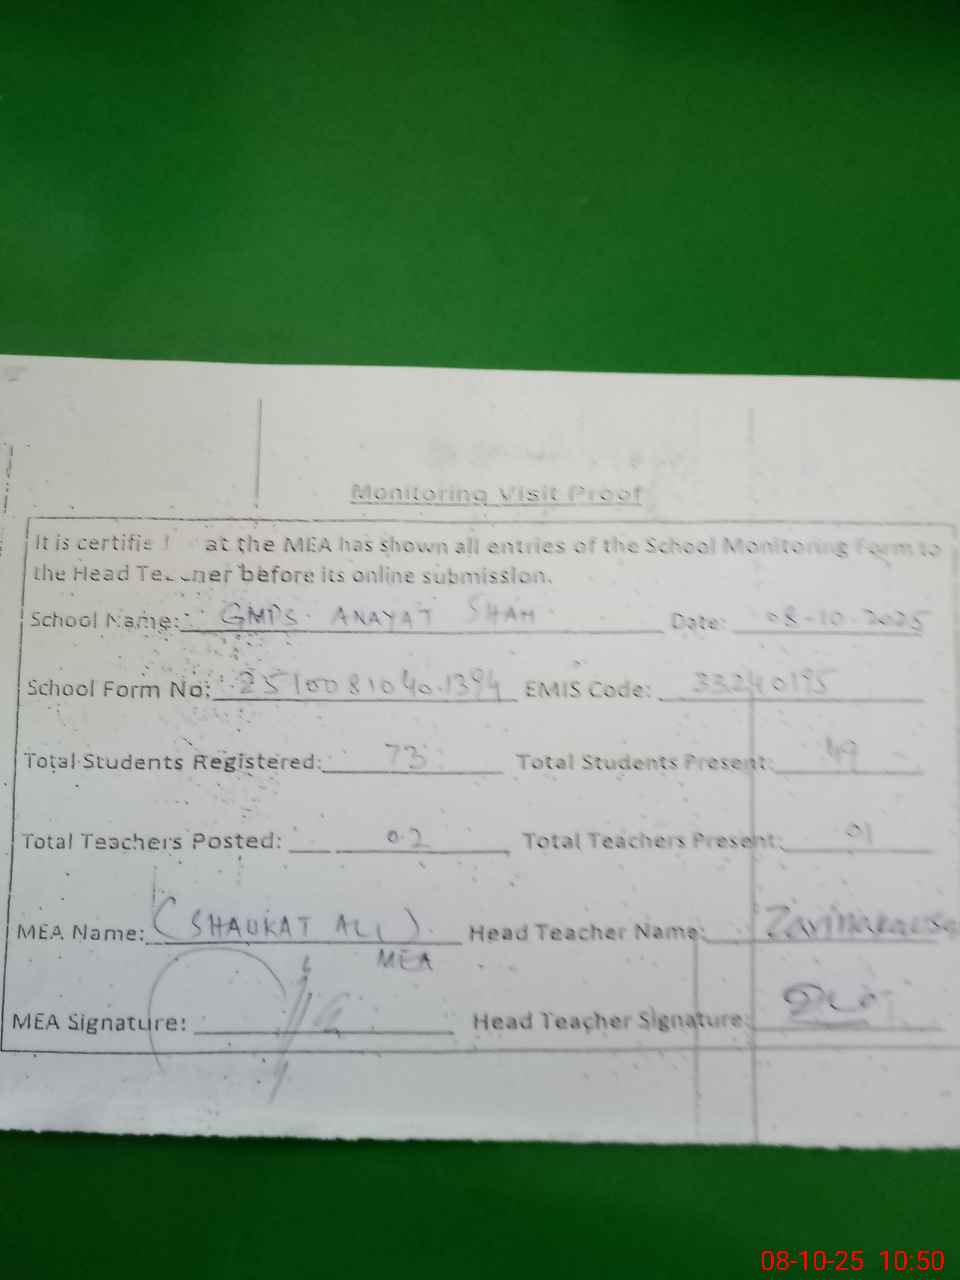 Monitoring Visit Proof
It is certifie at the MEA has shown all entries of the School Monitoring Form to
the Head Teacher before its online submission.
School Name: GMPS. ANAYAT SHAH Date: 08-10-2025
School Form No: 2510081040.1394 EMIS Code: 33240195
Total Students Registered: 73 Total Students Present: 49
Total Teachers Posted: 02 Total Teachers Present: 01
MEA Name: (SHAUKAT ALI) Head Teacher Name:
MEA
MEA Signature: Head Teacher Signature:
08-10-25 10:50